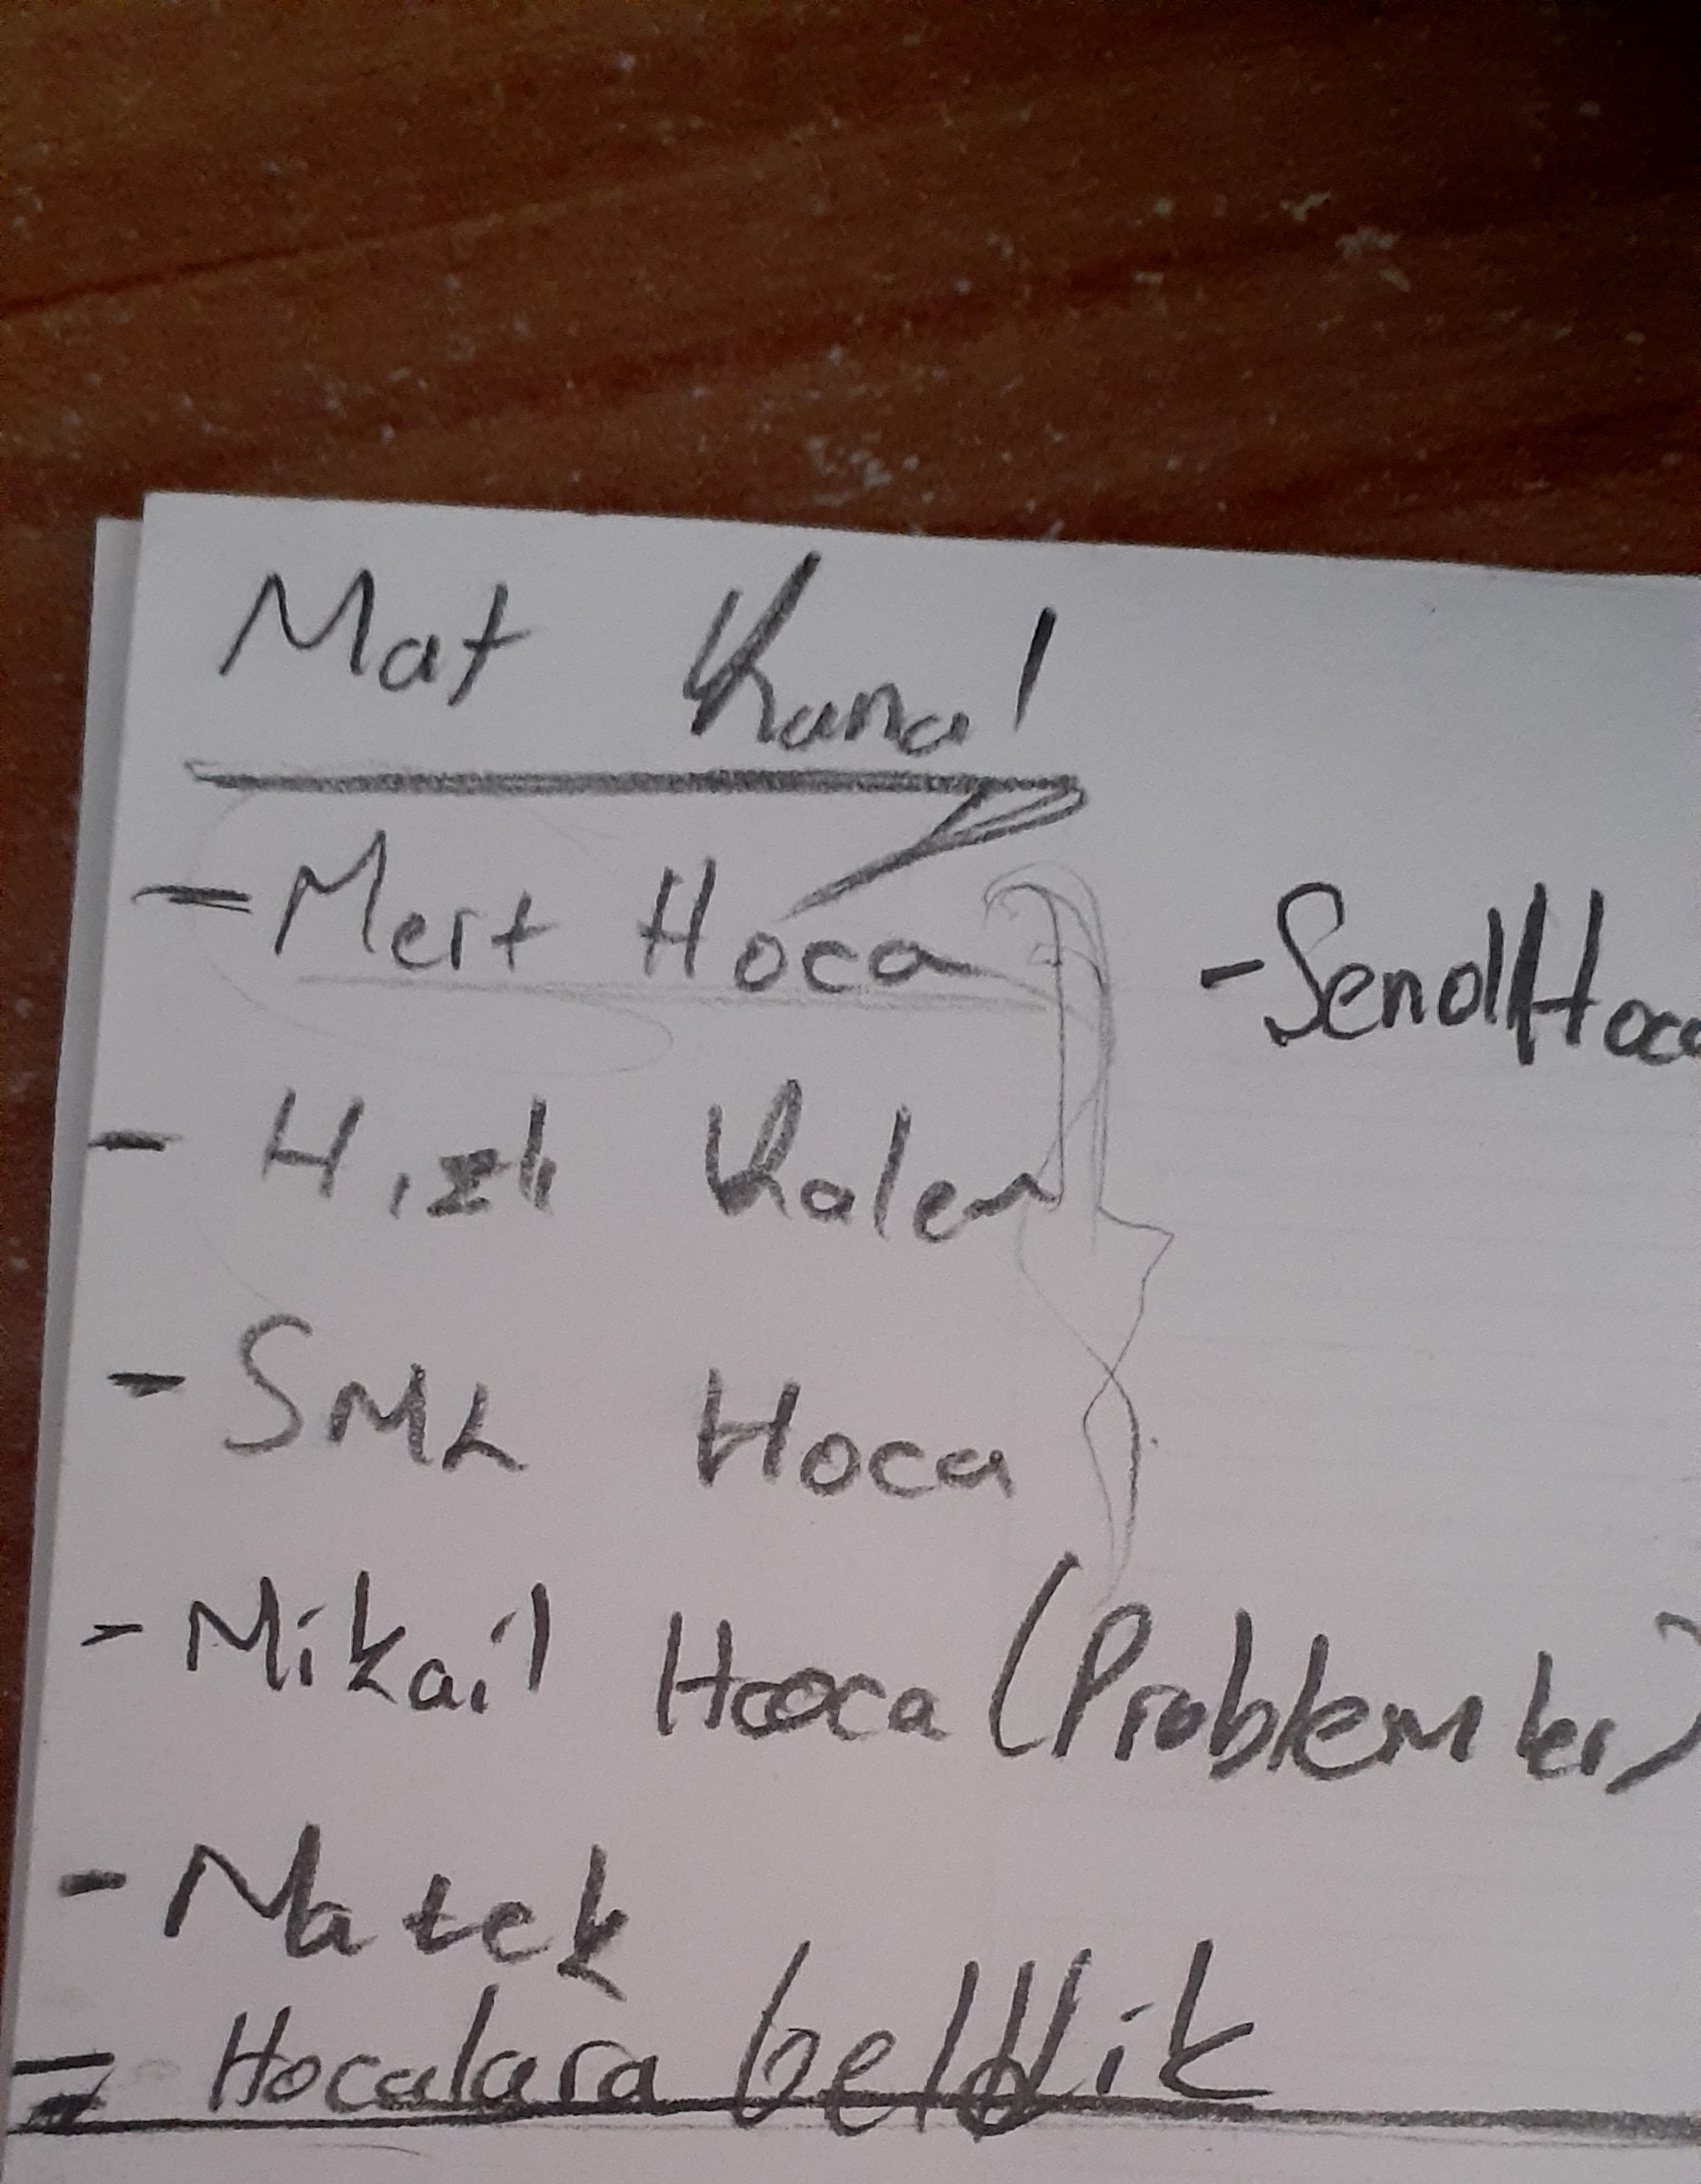 Mat Kanal
- Mert Hoca
- Senol Hoca
- Hızlı Kalem
- SML Hoca
- Mikail Hoca (Problemler)
- Matek
= Hocalara geldik